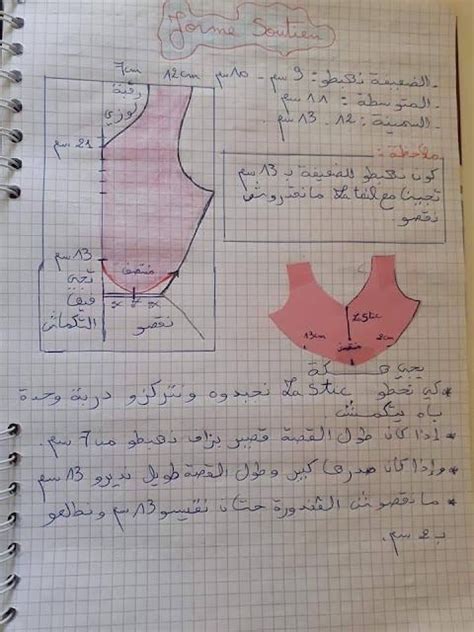 Forme Soutien
7cm 12cm
رقبة
لوزي
21 سم
13 سم
منتصف
تجي
فيها
التكماش
نقصو
- الضعيفة نهبطو: 9 سم - 10 سم
- المتوسطة : 11 سم
- السمينة : 12 . 13 سم .
ملاحظة :
كون نهبطو للضعيفة ب 13 سم
تجينا مع la taille مانقدروش
نقصو
Lastic
13cm
2cm
منتصف
يجي هكة
* كي نحطو Lastic نجبدوه ونتركزو دربة وحدة
باه يتكمش
* إذا كان طول القصة قصير بزاف نهبطو من 7 سم.
* وإذا كان صدرها كبير وطول القصة طويل نديرو 13 سم
* مانقصوش القندورة حتان نقيسو 13 سم ونطلعو
ب 2 سم.